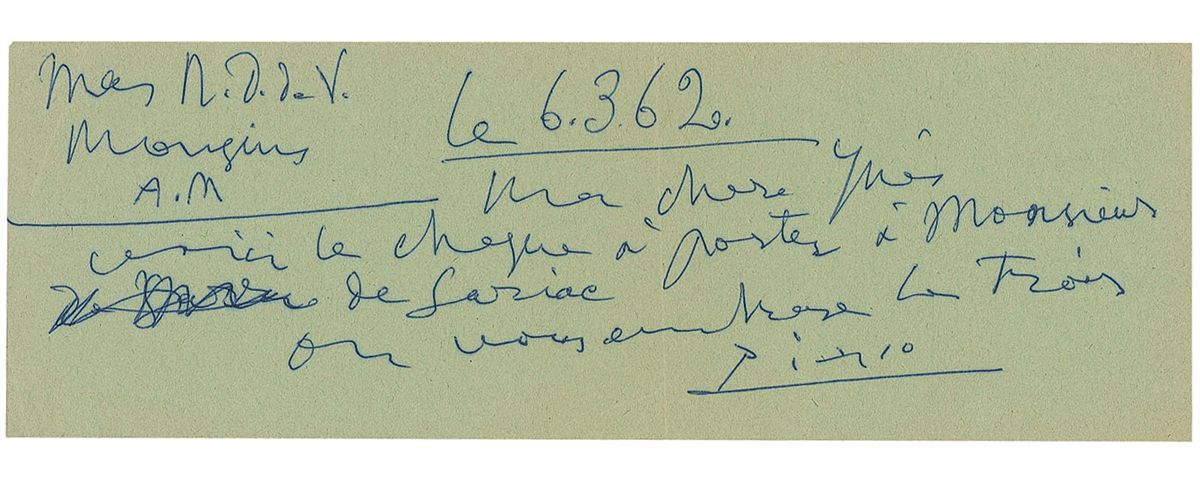 Mas N.D.d.V.
Mougins
A.M
le 6.3.62.
Ma chere Ynès
voici le cheque à porter à Monsieur
de Sariac
on vous embrasse les Trois
Picasso